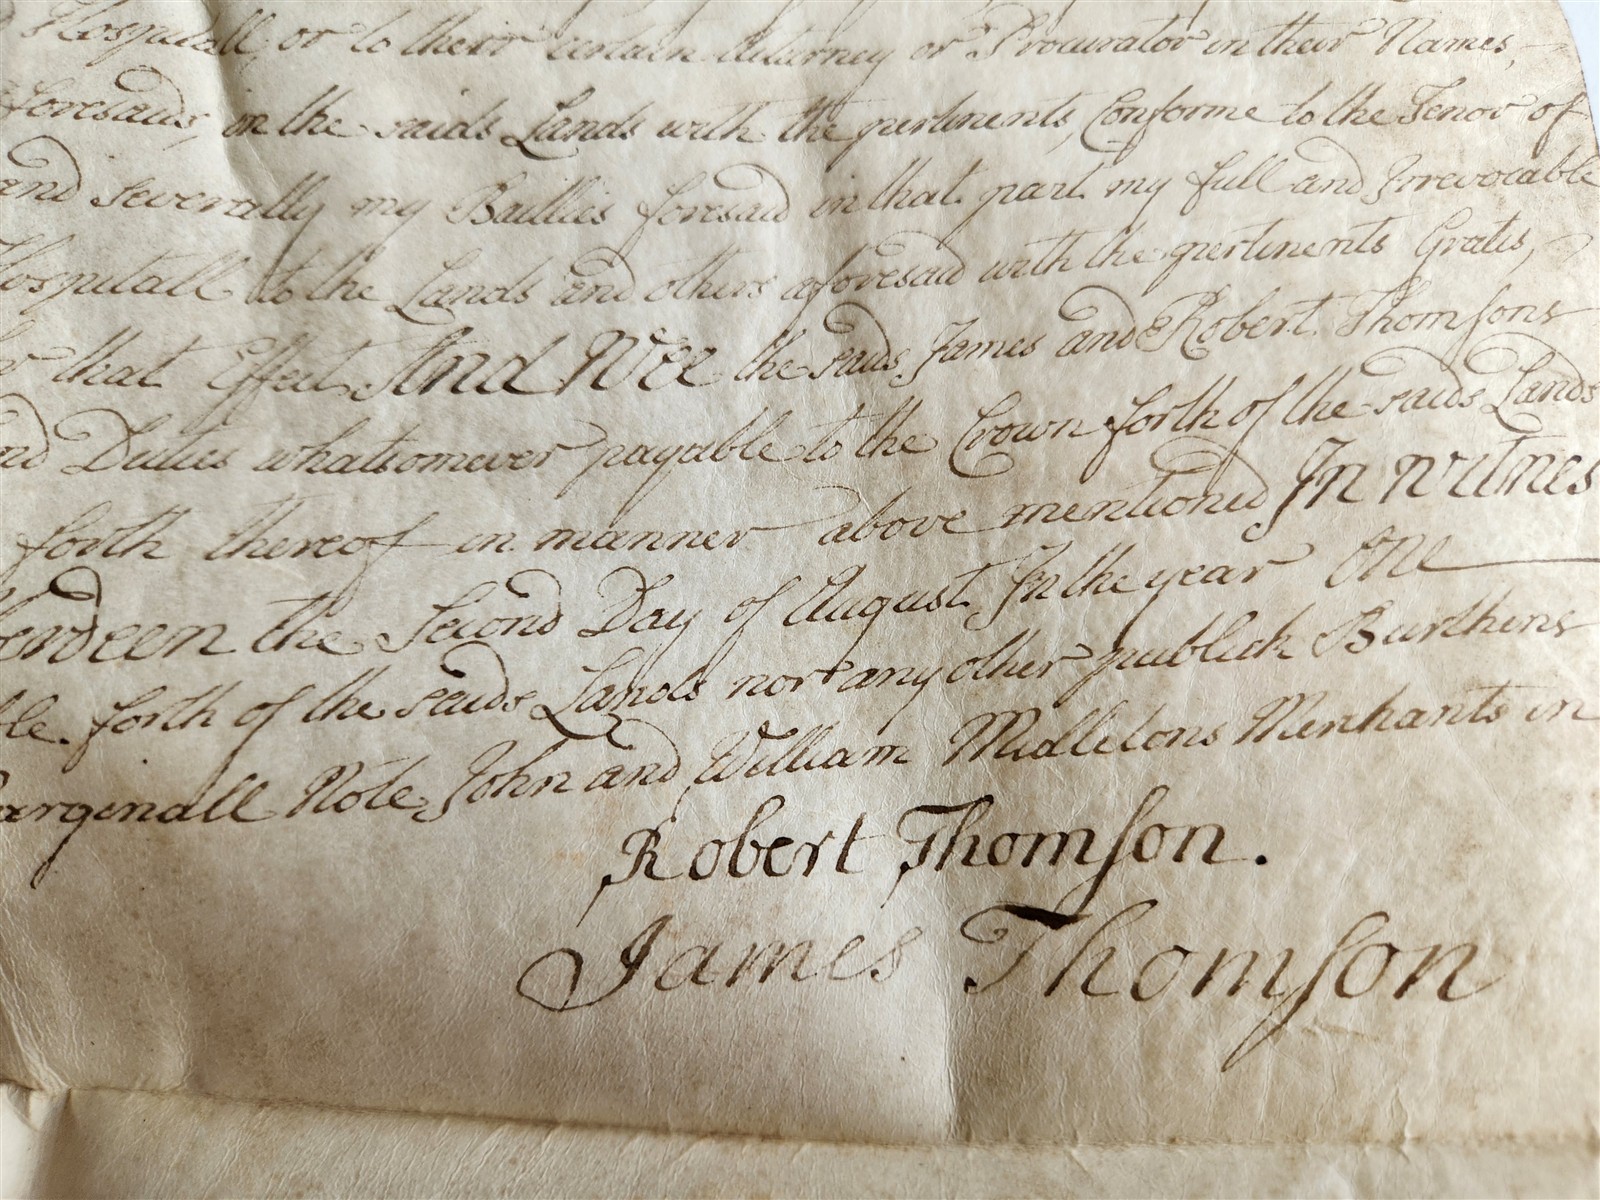 Hospitall or to their certain Atturney or Procurator in their Names,
foresaids, in the saids Lands with the pertinents, Conforme to the Tenor of
and severally my Baillies foresaid in that part my full and Irrevocable
Hospitall to the Lands and others aforesaid with the pertinents Gratis,
that Effect And Wee the saids James and Robert Thomsons
and Duties whatsomever payable to the Crown forth of the saids Lands
forth thereof in manner above mentioned In Witnes
berdeen the Second Day of August In the year One
ble forth of the saids Lands nor any other publick Burthens
arginall Note John and William Midletons Merchants in
Robert Thomson.
James Thomson